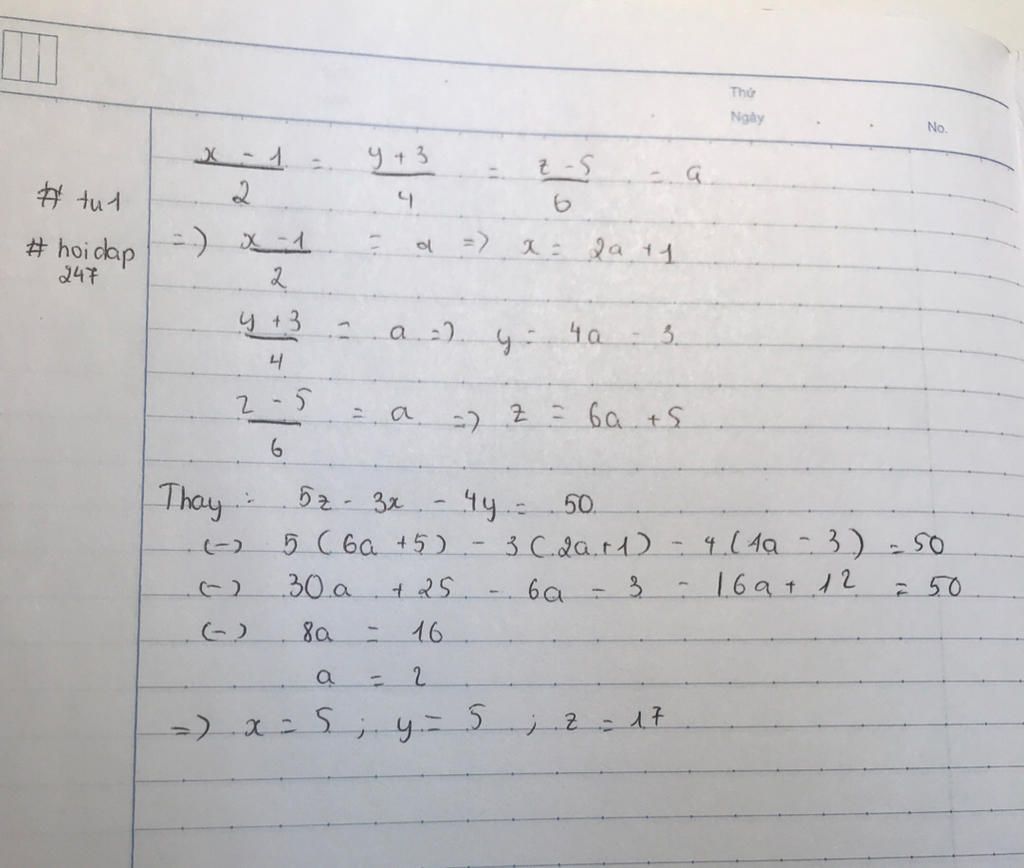 Thứ
Ngày
No.
# tu1
# hoidap
247
x - 1 / 2 = y + 3 / 4 = z - 5 / 6 = a
=) x - 1 / 2 = a => x = 2a + 1
y + 3 / 4 = a =) y = 4a - 3
z - 5 / 6 = a =) z = 6a + 5
Thay : 5z - 3x - 4y = 50
(-) 5 (6a + 5) - 3 (2a + 1) - 4 (4a - 3) = 50
(-) 30a + 25 - 6a - 3 - 16a + 12 = 50
(-) 8a = 16
a = 2
=) x = 5 ; y = 5 ; z = 17